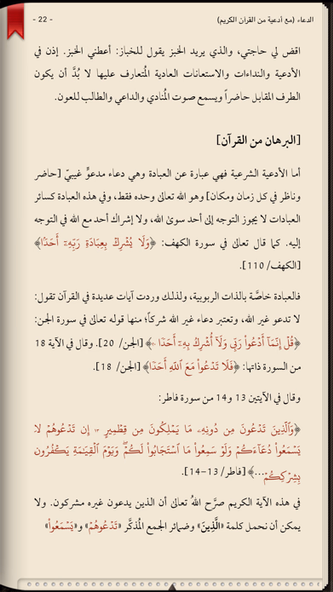 الدعاء (مع أدعية من القرآن الكريم)
- 22 -
اقض لي حاجتي، والذي يريد الخبز يقول للخباز: أعطني الخبز. إذن في
الأدعية والنداءات والاستعانات العادية المُتعارف عليها لا بُدَّ أن يكون
الطرف المقابل حاضراً ويسمع صوت المُنادي والداعي والطالب للعون.
[البرهان من القرآن]
أما الأدعية الشرعية فهي عبارة عن العبادة وهي دعاء مدعوٍّ غيبيّ [حاضر
وناظر في كل زمان ومكان] وهو الله تعالى وحده فقط، وفي هذه العبادة كسائر
العبادات لا يجوز التوجه إلى أحد سوى الله، ولا إشراك أحد مع الله في التوجه
إليه. كما قال تعالى في سورة الكهف: ﴿وَلَا يُشْرِكْ بِعِبَادَةِ رَبِّهِۦٓ أَحَدَۢا﴾
[الكهف/ 110].
فالعبادة خاصَّة بالذات الربوبية، ولذلك وردت آيات عديدة في القرآن تقول:
لا تدعو غير الله، وتعتبر دعاء غير الله شركاً؛ منها قوله تعالى في سورة الجن:
﴿قُلْ إِنَّمَآ أَدْعُواْ رَبِّي وَلَآ أُشْرِكُ بِهِۦٓ أَحَدٗا ٢٠﴾ [الجن/ 20]. وقال في الآية 18
من السورة ذاتها: ﴿فَلَا تَدْعُواْ مَعَ ٱللَّهِ أَحَدٗا﴾ [الجن/ 18].
وقال في الآيتين 13 و14 من سورة فاطر:
﴿وَٱلَّذِينَ تَدْعُونَ مِن دُونِهِۦ مَا يَمْلِكُونَ مِن قِطْمِيرٍ ١٣ إِن تَدْعُوهُمْ لَا
يَسْمَعُواْ دُعَآءَكُمْ وَلَوْ سَمِعُواْ مَا ٱسْتَجَابُواْ لَكُمْۖ وَيَوْمَ ٱلْقِيَٰمَةِ يَكْفُرُونَ
بِشِرْكِكُمْ...﴾ [فاطر/ 13-14].
في هذه الآية الكريم صرَّح اللهُ تعالى أن الذين يدعون غيره مشركون. ولا
يمكن أن نحمل كلمة «الَّذِينَ» وضمائر الجمع المُذكَّر «تَدْعُوهُمْ» و«يَسْمَعُواْ»